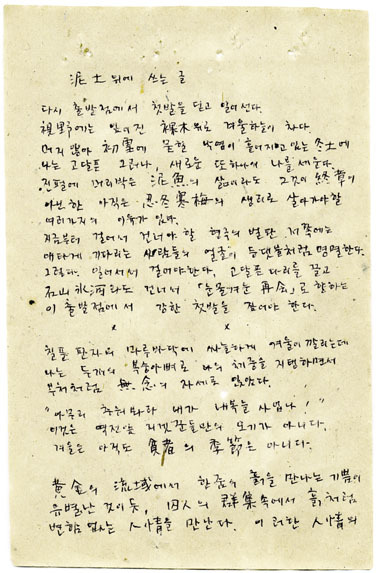 泥土 위에 쓰는 글
다시 출발점에서 첫발을 딛고 일어선다.
視野에는 잊어진 裸木 위로 겨울하늘이 차다.
머지 않아 初雪에 묻힐 낙엽이 흩어지고 있는 冬土에
나는 고달픈 그러나, 새로운 또하나의 나를 세운다.
진펄에 머리박은 泥魚의 삶이라도 그것이 終章이
아닌 한 아직은 忍冬寒梅의 생리로 살아가야할
여러가지의 이유가 있다.
지금부터 걸어서 건너야 할 형극의 벌판 저쪽에는
애타게 기다리는 사람들의 얼굴이 등댓불처럼 명멸한다.
그렇다. 일어서서 걸어야 한다. 고달픈 다리를 끌고
石山 氷河라도 건너서 「눈물겨운 再会」로 향하는
이 출발점에서 강한 첫발을 잡아야 한다.
x x
칠플 판자의 마루바닥에 싸늘하게 겨울이 깔리는데
나는 두개의 복숭아뼈로 나의 체중을 지탱하면서
부처처럼 無念의 자세로 앉았다.
"아무리 추워봐라 내가 내복을 사입나!"
이것은 역전앞 지겟꾼들만의 오기가 아니다.
겨울은 아직도 貧者의 季節은 아니다.
黃金의 流域에서 한줌의 흙을 만나는 기쁨이
유별난 것이듯, 囚人의 群集속에서 흙처럼
변함 없는 人情을 만난다. 이러한 人情의